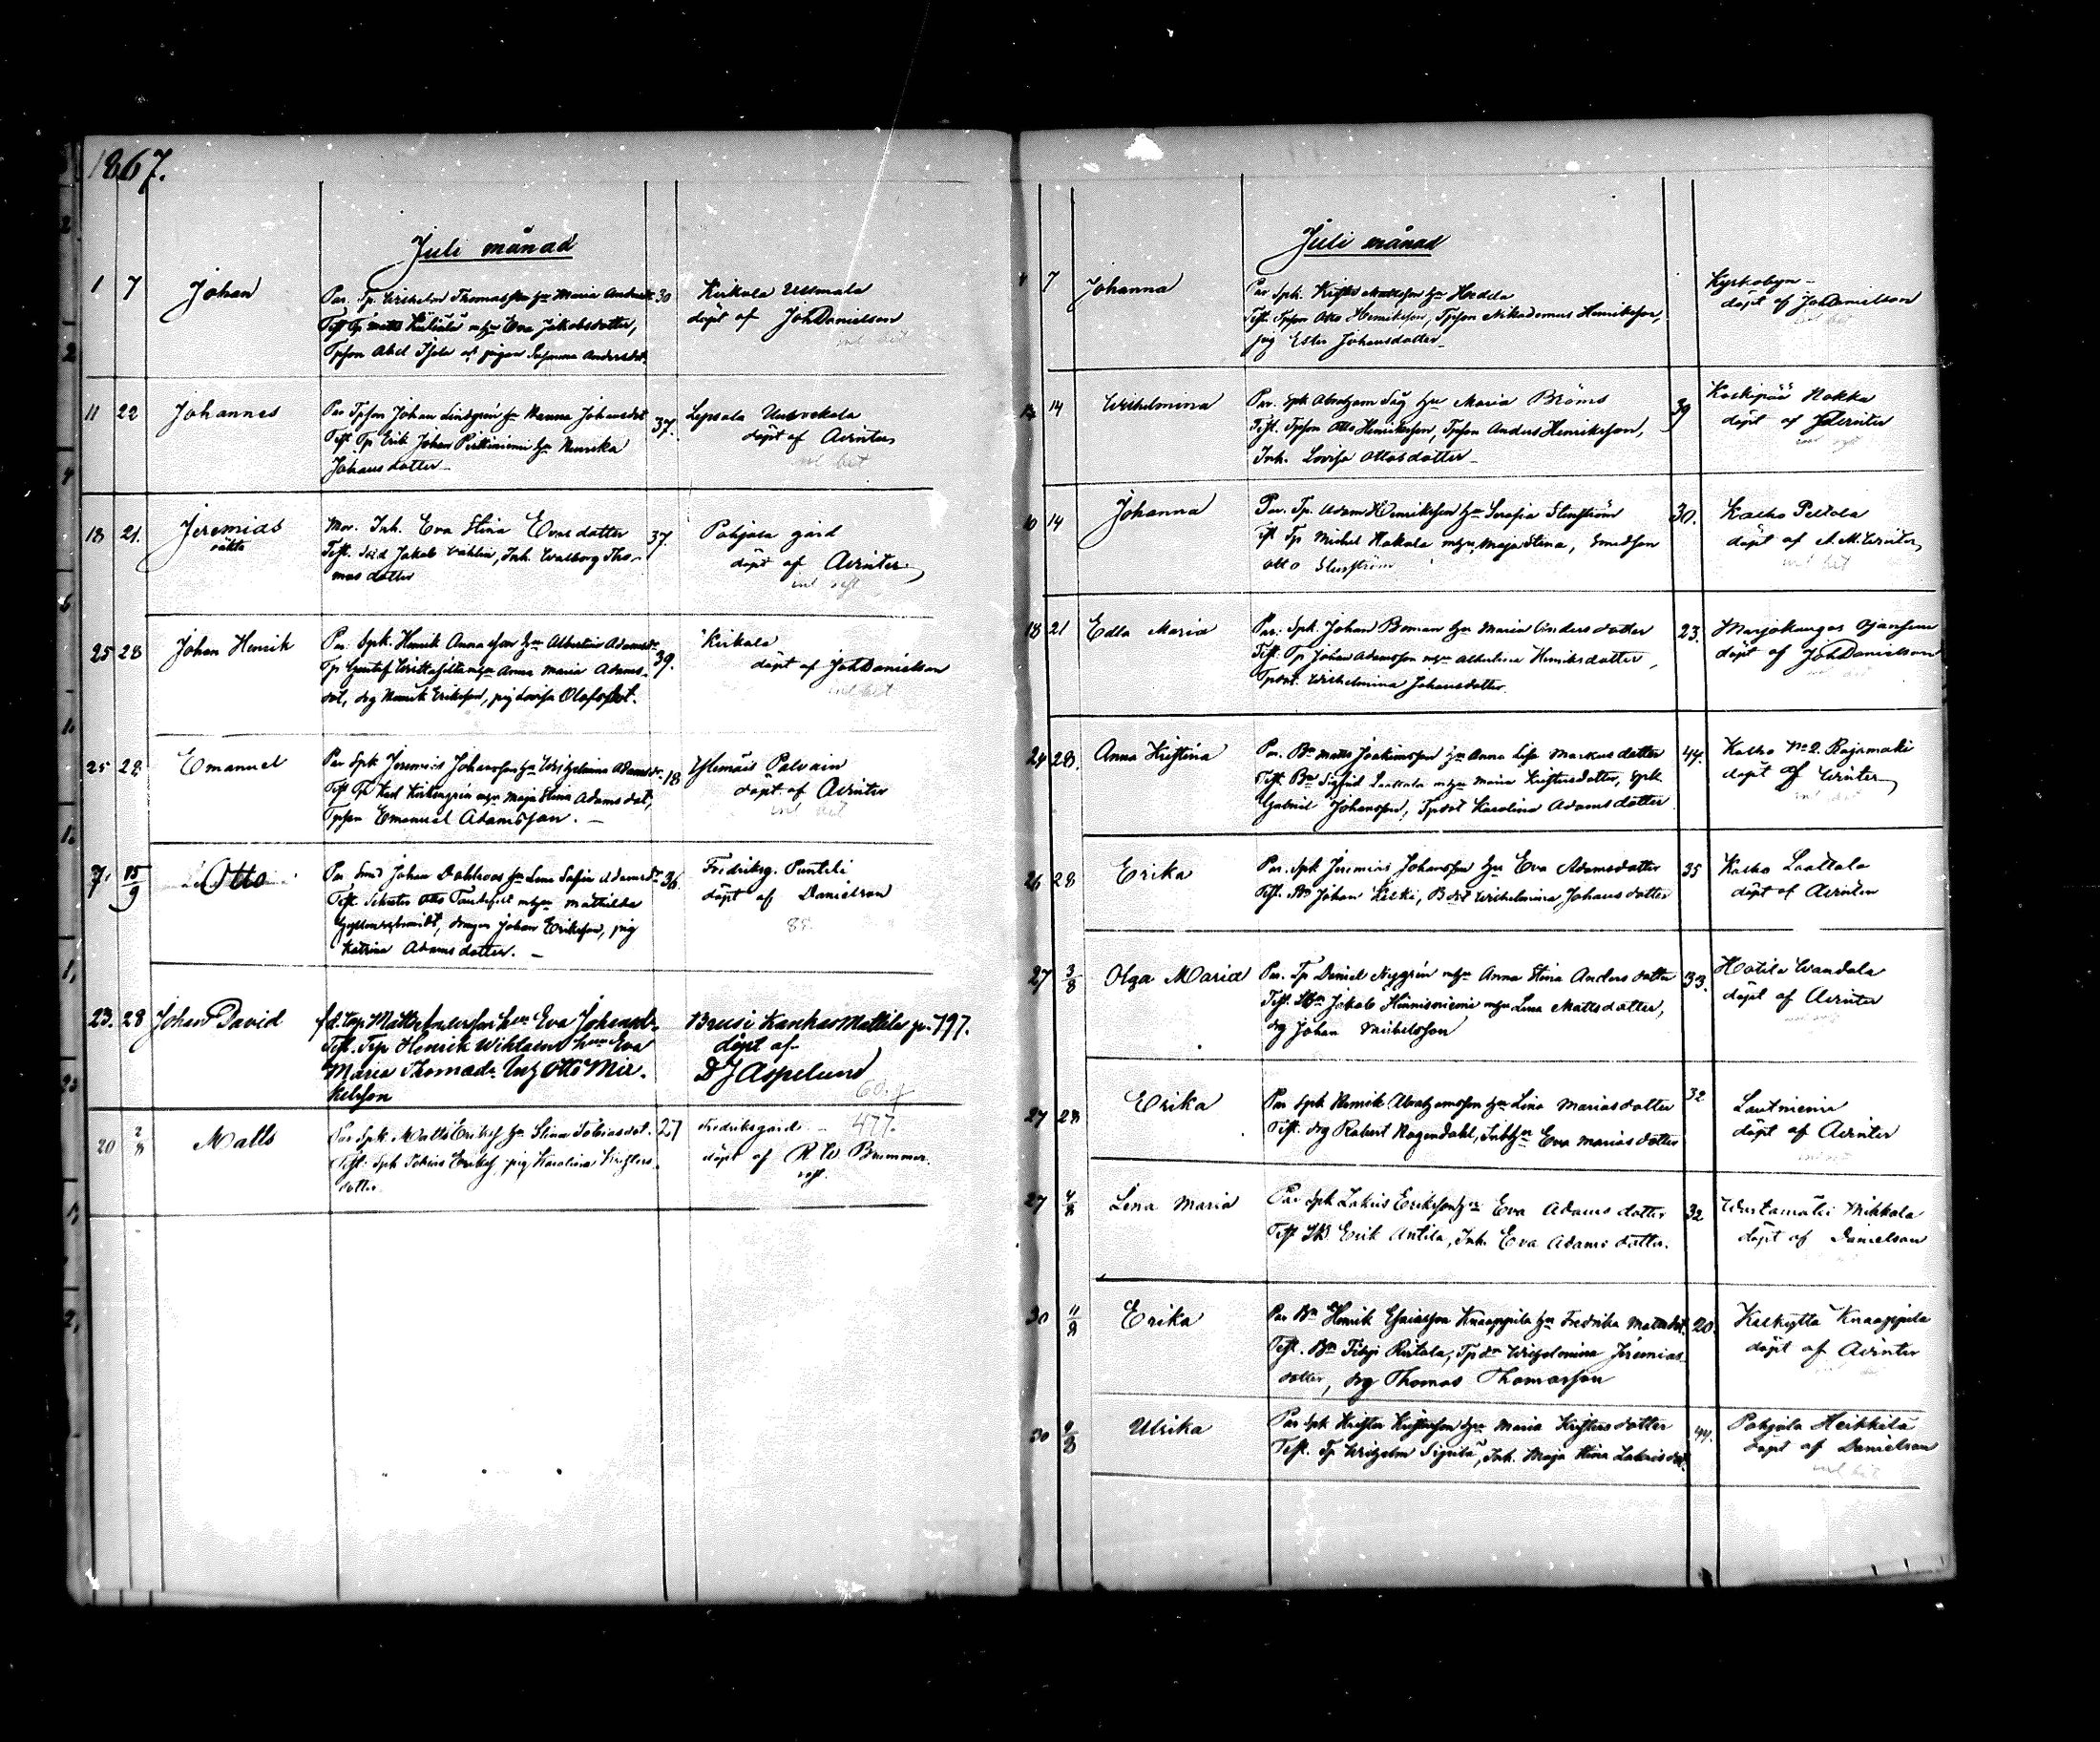 1867.
Juli månad
1 7 Johan
Par. Tp. Wilhelm Thomasson hu Maria Andersdr 30
Test Tp Matts mhu Eva Jakobsdotter,
Tpson Abel pigan Susanna Andersdot.
Kirkola Ullmala
döpt af Joh Danielson
11 22 Johannes
Par Tpson Johan Lindgrén hu Manna Johansdot 37.
Test Tp Erik Johan hu Henrika
Johansdotter
Lepsala
döpt af AWinter
18 21. Jeremias
oäkta
Mor. Inh. Eva Stina Evasdotter 37.
Test. Jakob Inh. Walborg Tho-
mas dotter
Pohjala gård
döpt af AWinter
25 28 Johan Henrik
Par. Spk. Henrik Annasson hu Albertina Adamsdr 39.
Tp Gustaf mhu Anna Maria Adams-
dot, drg Henrik Eriksson, pig Lovisa Olofsdot.
Kirkola
döpt af Joh Danielson
25 28 Emanuel
Par Spk Jeremias Johansson hu Wilhelmina Adamsdr 18
Test Tp Karl mhu Maja Stina Adamsdot,
Tpson Emanuel Adamsson.
Ylemäis Palvain
döpt af AWinter
7. 15/9 Otto
Par Smd Johan Dahlroos hu Lena Sofia Adamsdr 36.
Test. Otto mhu Mathilda
drngn Johan Eriksson, pig
Katrina Adamsdotter.
Fredriksg. Puntili
döpt af Danielson
85.
23. 28 Johan David
fd. torp Matts Andersson hu Eva Johansdr.
Test. Torp Henrik hu Eva
Maria Thomasdr. Otto Mic-
kelsson
Brusi Kankas Mattila p. 797.
döpt af
DJ Aspelund
20 2/8 Matts
Par Spk. Matts Eriks hu Stina Tobiasdot. 27
Test. Spk Tobias Eriks pig Karolina Kristers-
dotter
Fredriksgård 477.
döpt af R W Brummer.
Juli månad
7 Johanna
Par Spk. Krister Mattsson hu Hedda
Test. Tpson Otto Henriksson, Tpson Nikodemus Henriksson,
pig Ester Johansdotter
Kyrkobyn
döpt af Joh Danielson
14 Wilhelmina
Par. Spk Abraham Säg hu Maria Bröms 39
Test. Tpson Otto Henriksson, Tpson Anders Henriksson,
Inh. Lovisa Ottosdotter
Koskipää Hokka
döpt af AWinter
10 14 Johanna
Par. Tp. Adam Henriksson hu Serafia Stenström 30.
Test Tp Michel Hakala mhu Maja Stina, Smedson
Otto Stenström
Kalho Peltola
döpt af A.M. Winter
18 21 Edla Maria
Par. Spk. Johan Boman hu Maria Andersdotter 23.
Test. Tp Johan Adamsson mhu Albertina Henriksdotter,
Tpdot. Wilhelmina Johansdotter
Marjokangas
döpt af Joh Danielson
24 28. Anna Kristina
Par. Bn Matts Joakimsson hu Anna Lisa Markusdotter 44.
Test. Bn Sigfrid Laattala mhu Maria Kristersdotter, Spk
Gabriel Johansson, Tpdot Karolina Adamsdotter
Kalho No 2. Rajamäki
döpt af Winter
26 28 Erika
Par. Spk Jeremias Johansson hu Eva Adamsdotter 35
Test. Bn Johan Kelki, Bdot Wilhelmina Johansdotter
Kalho Laattala
döpt af AWinter
27 3/8 Olga Maria
Par. Tp Daniel Nygrén mhu Anna Stina Andersdotter 33.
Test. Jakob Hinnisniemi mhu Lena Mattsdotter,
drg Johan Mikelsson
Hotila Wandala
döpt af AWinter
27 28 Erika
Par Spk Henrik Abrahamsson hu Lina Mariasdotter 32
Test. drg Robert Rogendahl, Eva Mariasdotter
Lautniemi
döpt af AWinter
27 4/8 Lena Maria
Par Spk Zakris Eriksson hu Eva Adamsdotter 32
Test Erik Antila, Inh. Eva Adamsdotter.
Mikkola
döpt af Danielson
30 11/8 Erika
Par Bn Henrik Esaiasson Knaappila hu Fredrika Mattsdot. 20.
Test. Bn Filip Rietala, Tpdr Wilhelmina Jeremias-
dotter, drg Thomas Thomasson
Kalkytta Knaappila
döpt af AWinter
30 4/8 Ulrika
Par Spk Krister Kristersson hu Maria Kristersdotter 44.
Test. Tp Wilhelm Inh. Maja Stina Zakrisdot.
Pohjola Heikkilä
döpt af Danielson